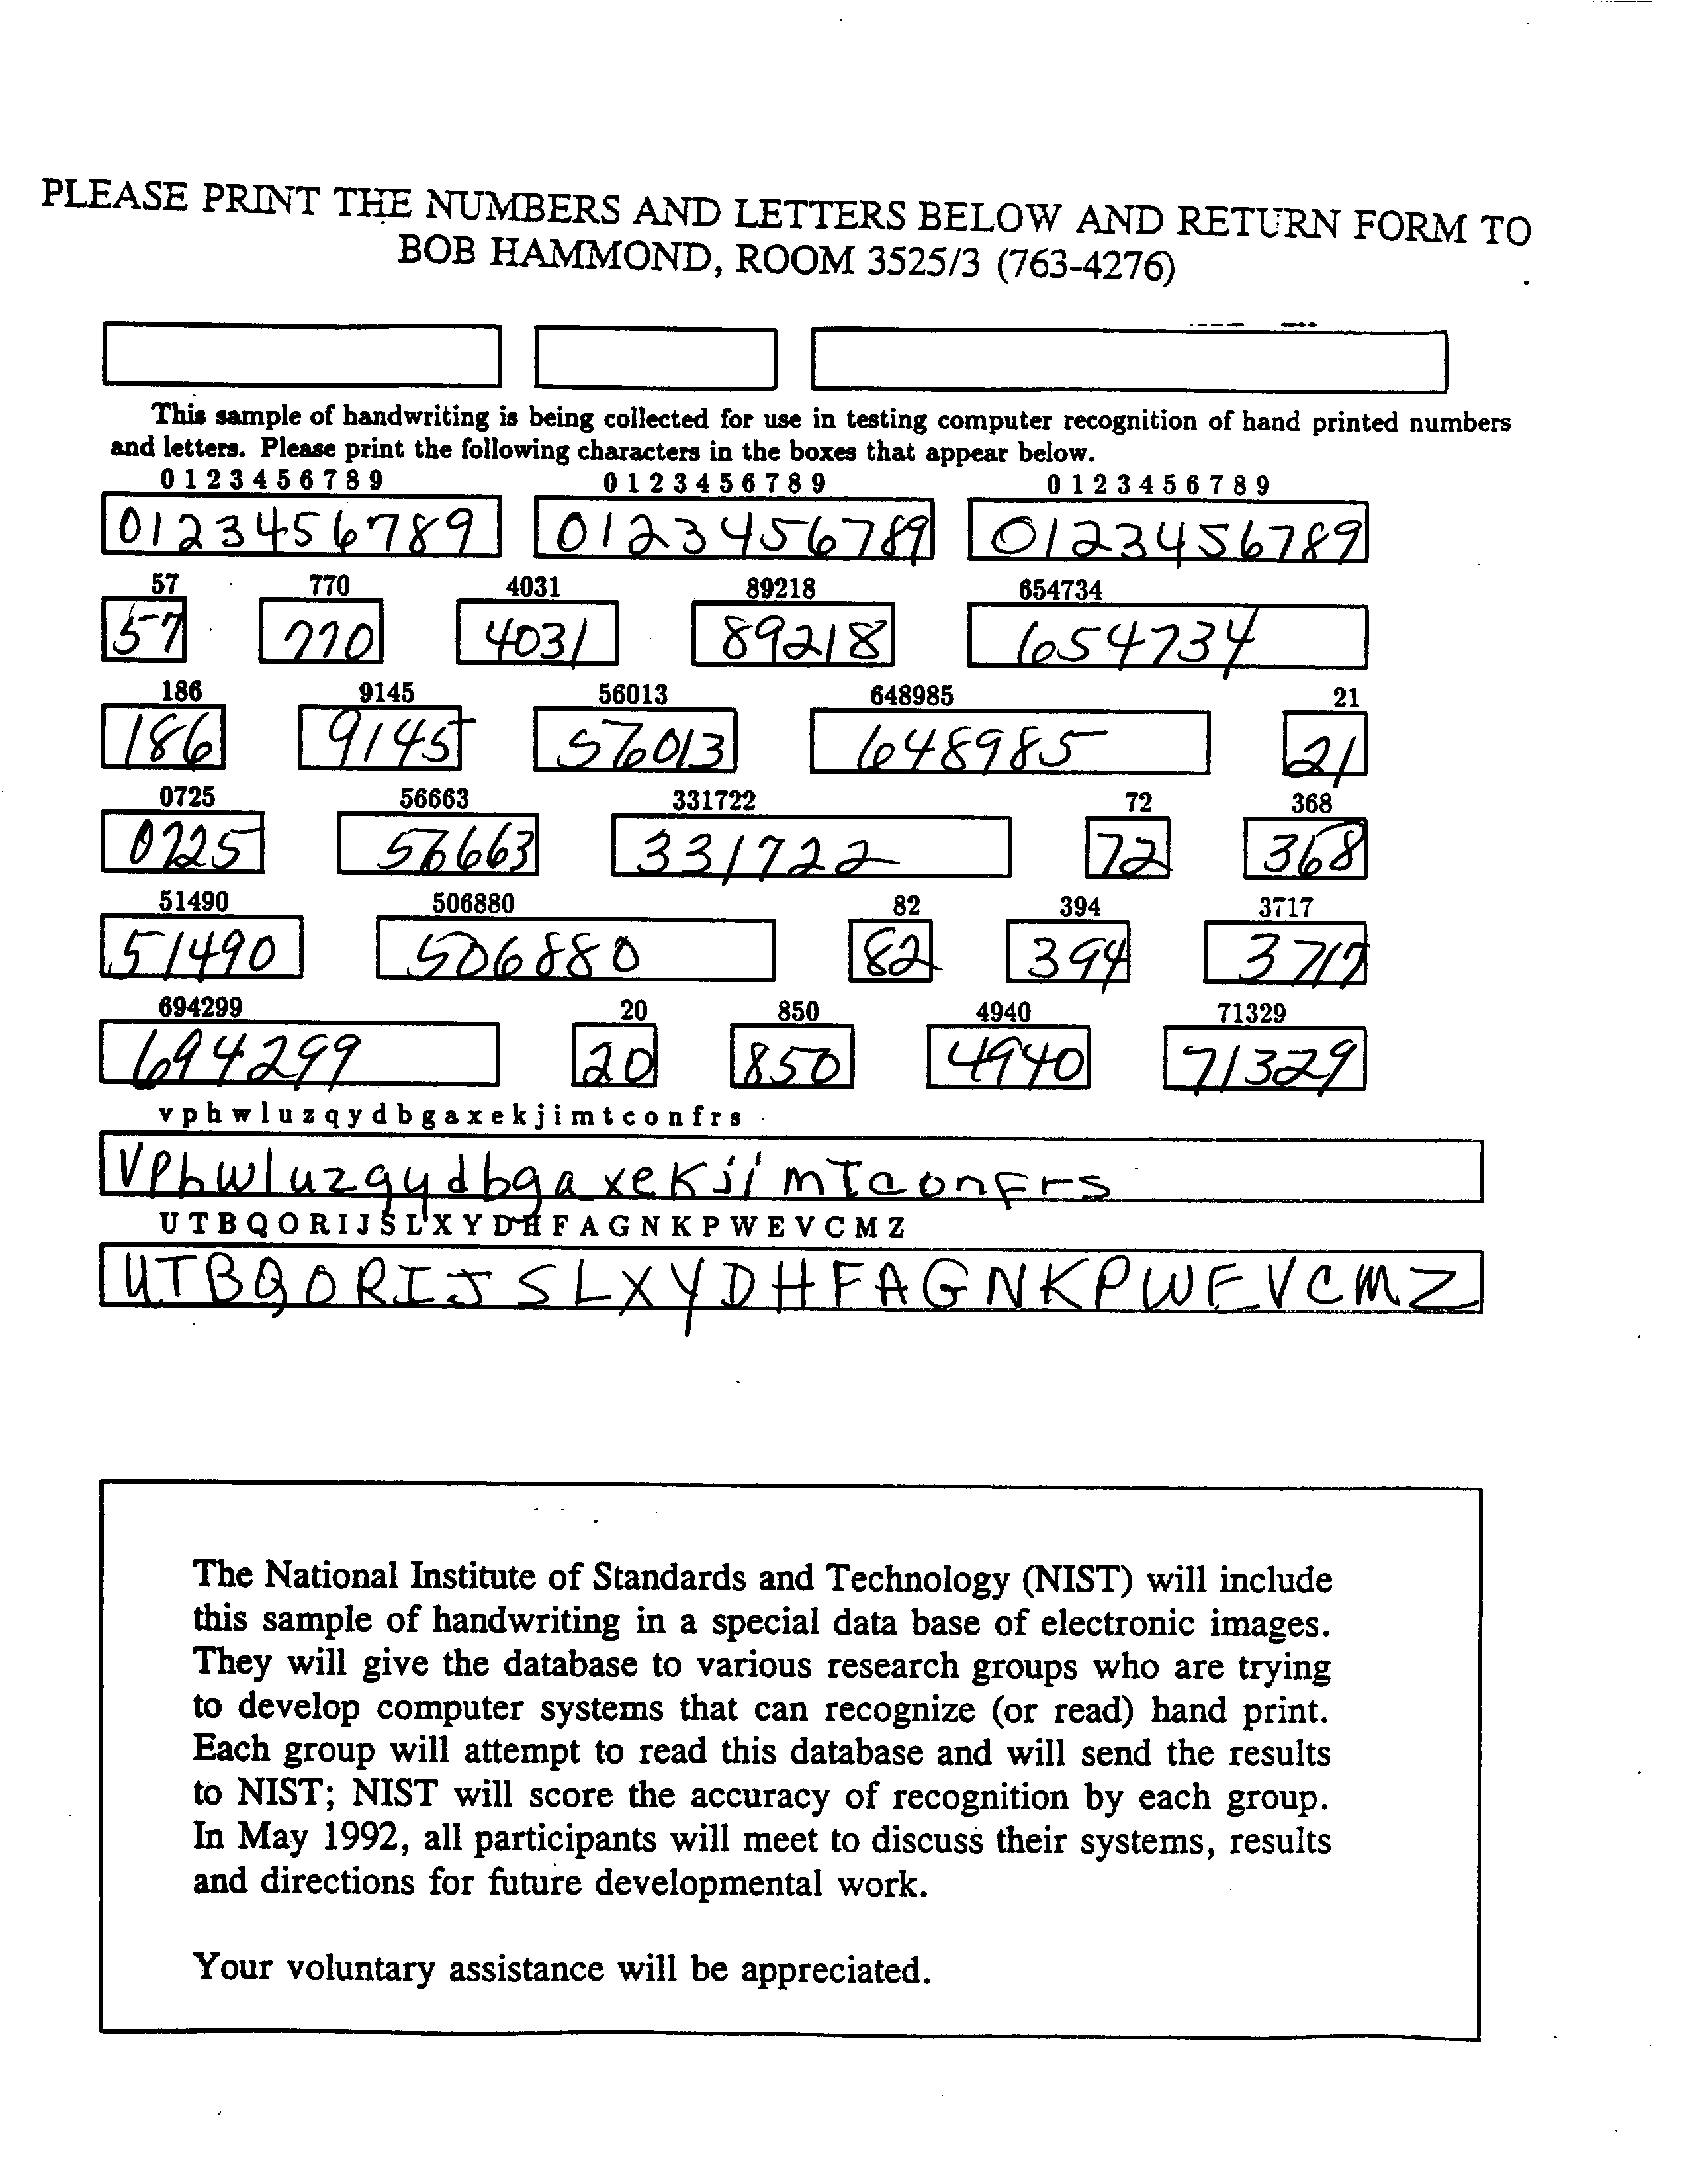 PLEASE PRINT THE NUMBERS AND LETTERS BELOW AND RETURN FORM TO
BOB HAMMOND, ROOM 3525/3 (763-4276)
This sample of handwriting is being collected for use in testing computer recognition of hand printed numbers
and letters. Please print the following characters in the boxes that appear below.
0 1 2 3 4 5 6 7 8 9 0 1 2 3 4 5 6 7 8 9 0 1 2 3 4 5 6 7 8 9
0123456789 0123456789 0123456789
57 770 4031 89218 654734
57 770 4031 89218 654734
186 9145 56013 648985 21
186 9145 56013 648985 21
0725 56663 331722 72 368
0725 56663 331722 72 368
51490 506880 82 394 3717
51490 506880 82 394 3717
694299 20 850 4940 71329
694299 20 850 4940 71329
v p h w l u z q y d b g a x e k j i m t c o n f r s
vphwluzqydbgaxekjimtconfrs
U T B Q O R I J S L X Y D H F A G N K P W E V C M Z
UTBQORIJSLXYDHFAGNKPWEVCMZ
The National Institute of Standards and Technology (NIST) will include
this sample of handwriting in a special data base of electronic images.
They will give the database to various research groups who are trying
to develop computer systems that can recognize (or read) hand print.
Each group will attempt to read this database and will send the results
to NIST; NIST will score the accuracy of recognition by each group.
In May 1992, all participants will meet to discuss their systems, results
and directions for future developmental work.
Your voluntary assistance will be appreciated.